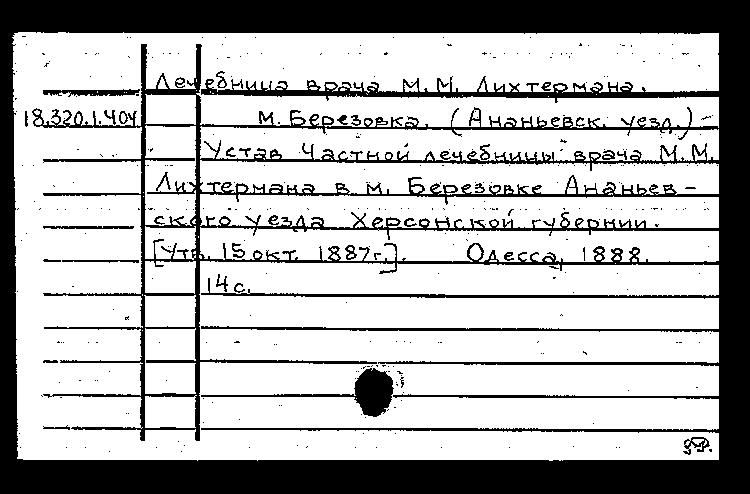 Лечебница врача М.М. Лихтермана.
18.320.1.404 м. Березовка. (Ананьевск. уезд.) -
Устав Частной лечебницы врача М.М.
Лихтермана в м. Березовке Ананьев-
ского уезда Херсонской губернии.
[Утв. 15 окт. 1887г.]. Одесса, 1888.
14 с.